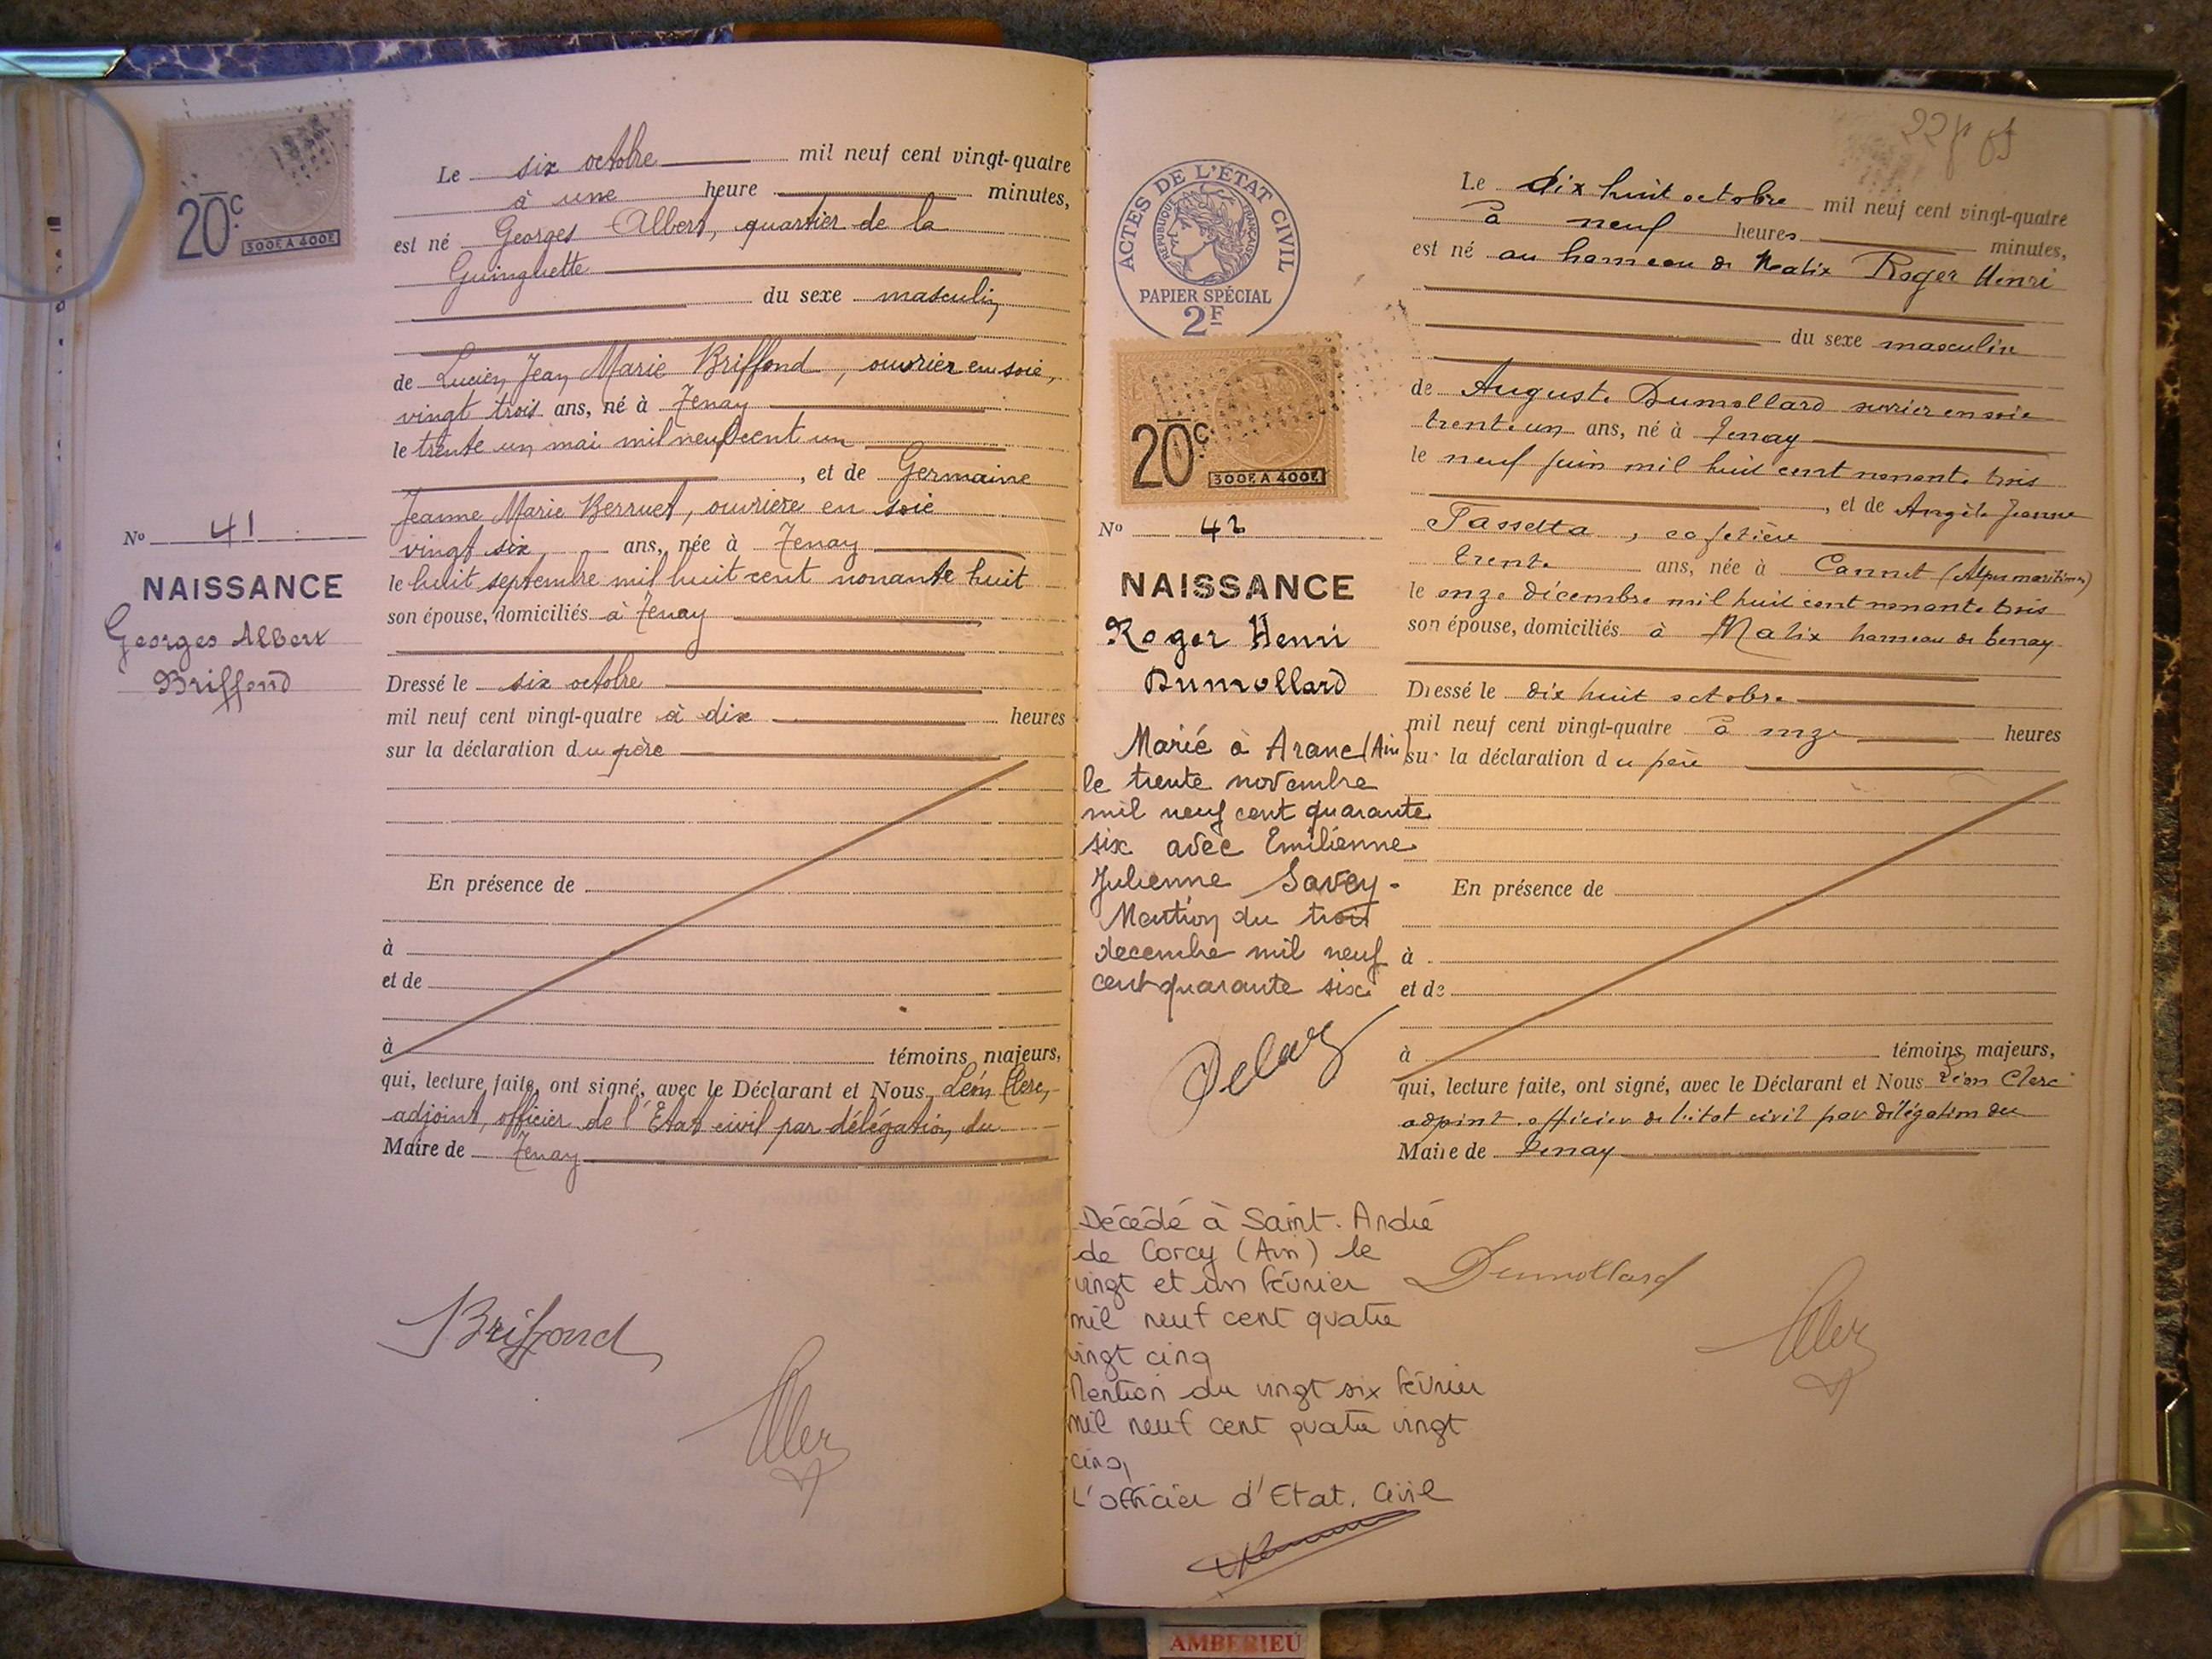 20c
300F A 400F
Le six octobre mil neuf cent vingt-quatre
à une heure minutes,
est né Georges Albert, quartier de la
Guinguette
du sexe masculin
de Lucien Jean Marie Briffond, ouvrier en soie,
vingt trois ans, né à Tenay
le trente un mai mil neuf cent un
, et de Germaine
Jeanne Marie Berruet, ouvrière en soie
vingt six ans, née à Tenay
le huit septembre mil huit cent nonante huit
son épouse, domiciliés à Tenay
No 41
NAISSANCE
Georges Albert
Briffond
Dressé le six octobre
mil neuf cent vingt-quatre à dix heures
sur la déclaration du père
En présence de
à
et de
à témoins majeurs,
qui, lecture faite, ont signé, avec le Déclarant et Nous, Léon Clerc,
adjoint, officier de l'Etat civil par délégation du
Maire de Tenay
Briffond
22
ACTES DE L'ETAT CIVIL
REPUBLIQUE FRANÇAISE
PAPIER SPÉCIAL
2F
20c
300F A 400F
Le dix huit octobre mil neuf cent vingt-quatre
à neuf heures minutes,
est né au hameau de Malix Roger Henri
du sexe masculin
de Auguste Dumollard ouvrier en soie
trente un ans, né à Tenay
le neuf juin mil huit cent nonante trois
, et de Angèle Jeanne
Tassetta, cafetière
trente ans, née à Cannet (Alpes maritimes)
le onze décembre mil huit cent nonante trois
son épouse, domiciliés à Malix hameau de Tenay
No 42
NAISSANCE
Roger Henri
Dumollard
Marié à Aranc (Ain)
le trente novembre
mil neuf cent quarante
six avec Emilienne
Julienne Savey.
Mention du trois
decembre mil neuf
cent quarante six
Delay
Dressé le dix huit octobre
mil neuf cent vingt-quatre à onze heures
sur la déclaration du père
En présence de
à
et de
à témoins majeurs,
qui, lecture faite, ont signé, avec le Déclarant et Nous Léon Clerc
adjoint officier de l'état civil par délégation du
Maire de Tenay
Décédé à Saint. André
de Corcy (Ain) le
vingt et un février
mil neuf cent quatre
vingt cinq
Mention du vingt six février
mil neuf cent quatre vingt
cinq
L'officier d'Etat. Civil
Dumollard
AMBERIEU